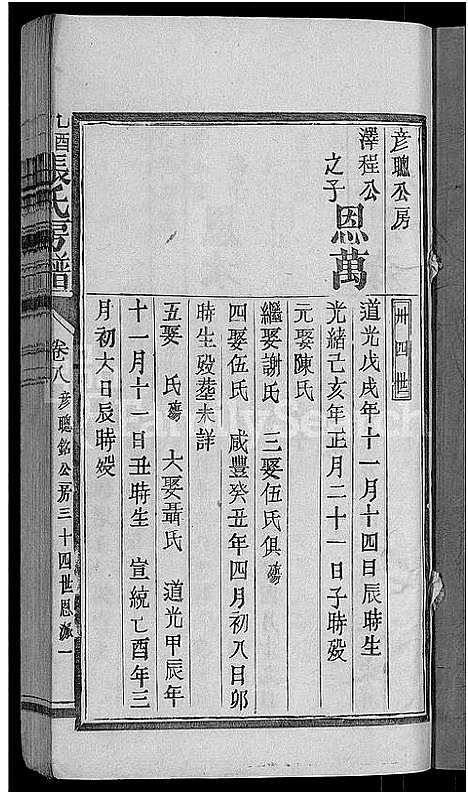 彦聰公房
澤程公
之子
恩萬
卅四世
道光戊戌年十一月十四日辰時生
光緒己亥年正月二十一日子時歿
元娶陳氏
繼娶謝氏 三娶伍氏俱殤
四娶伍氏 咸豐癸丑年四月初八日卯
時生歿塟未詳
五娶 氏殤 六娶聶氏 道光甲辰年
十一月十一日丑時生 宣統乙酉年三
月初六日辰時歿
乙酉張氏房譜
卷八 彦聰銘公房三十四世恩派一